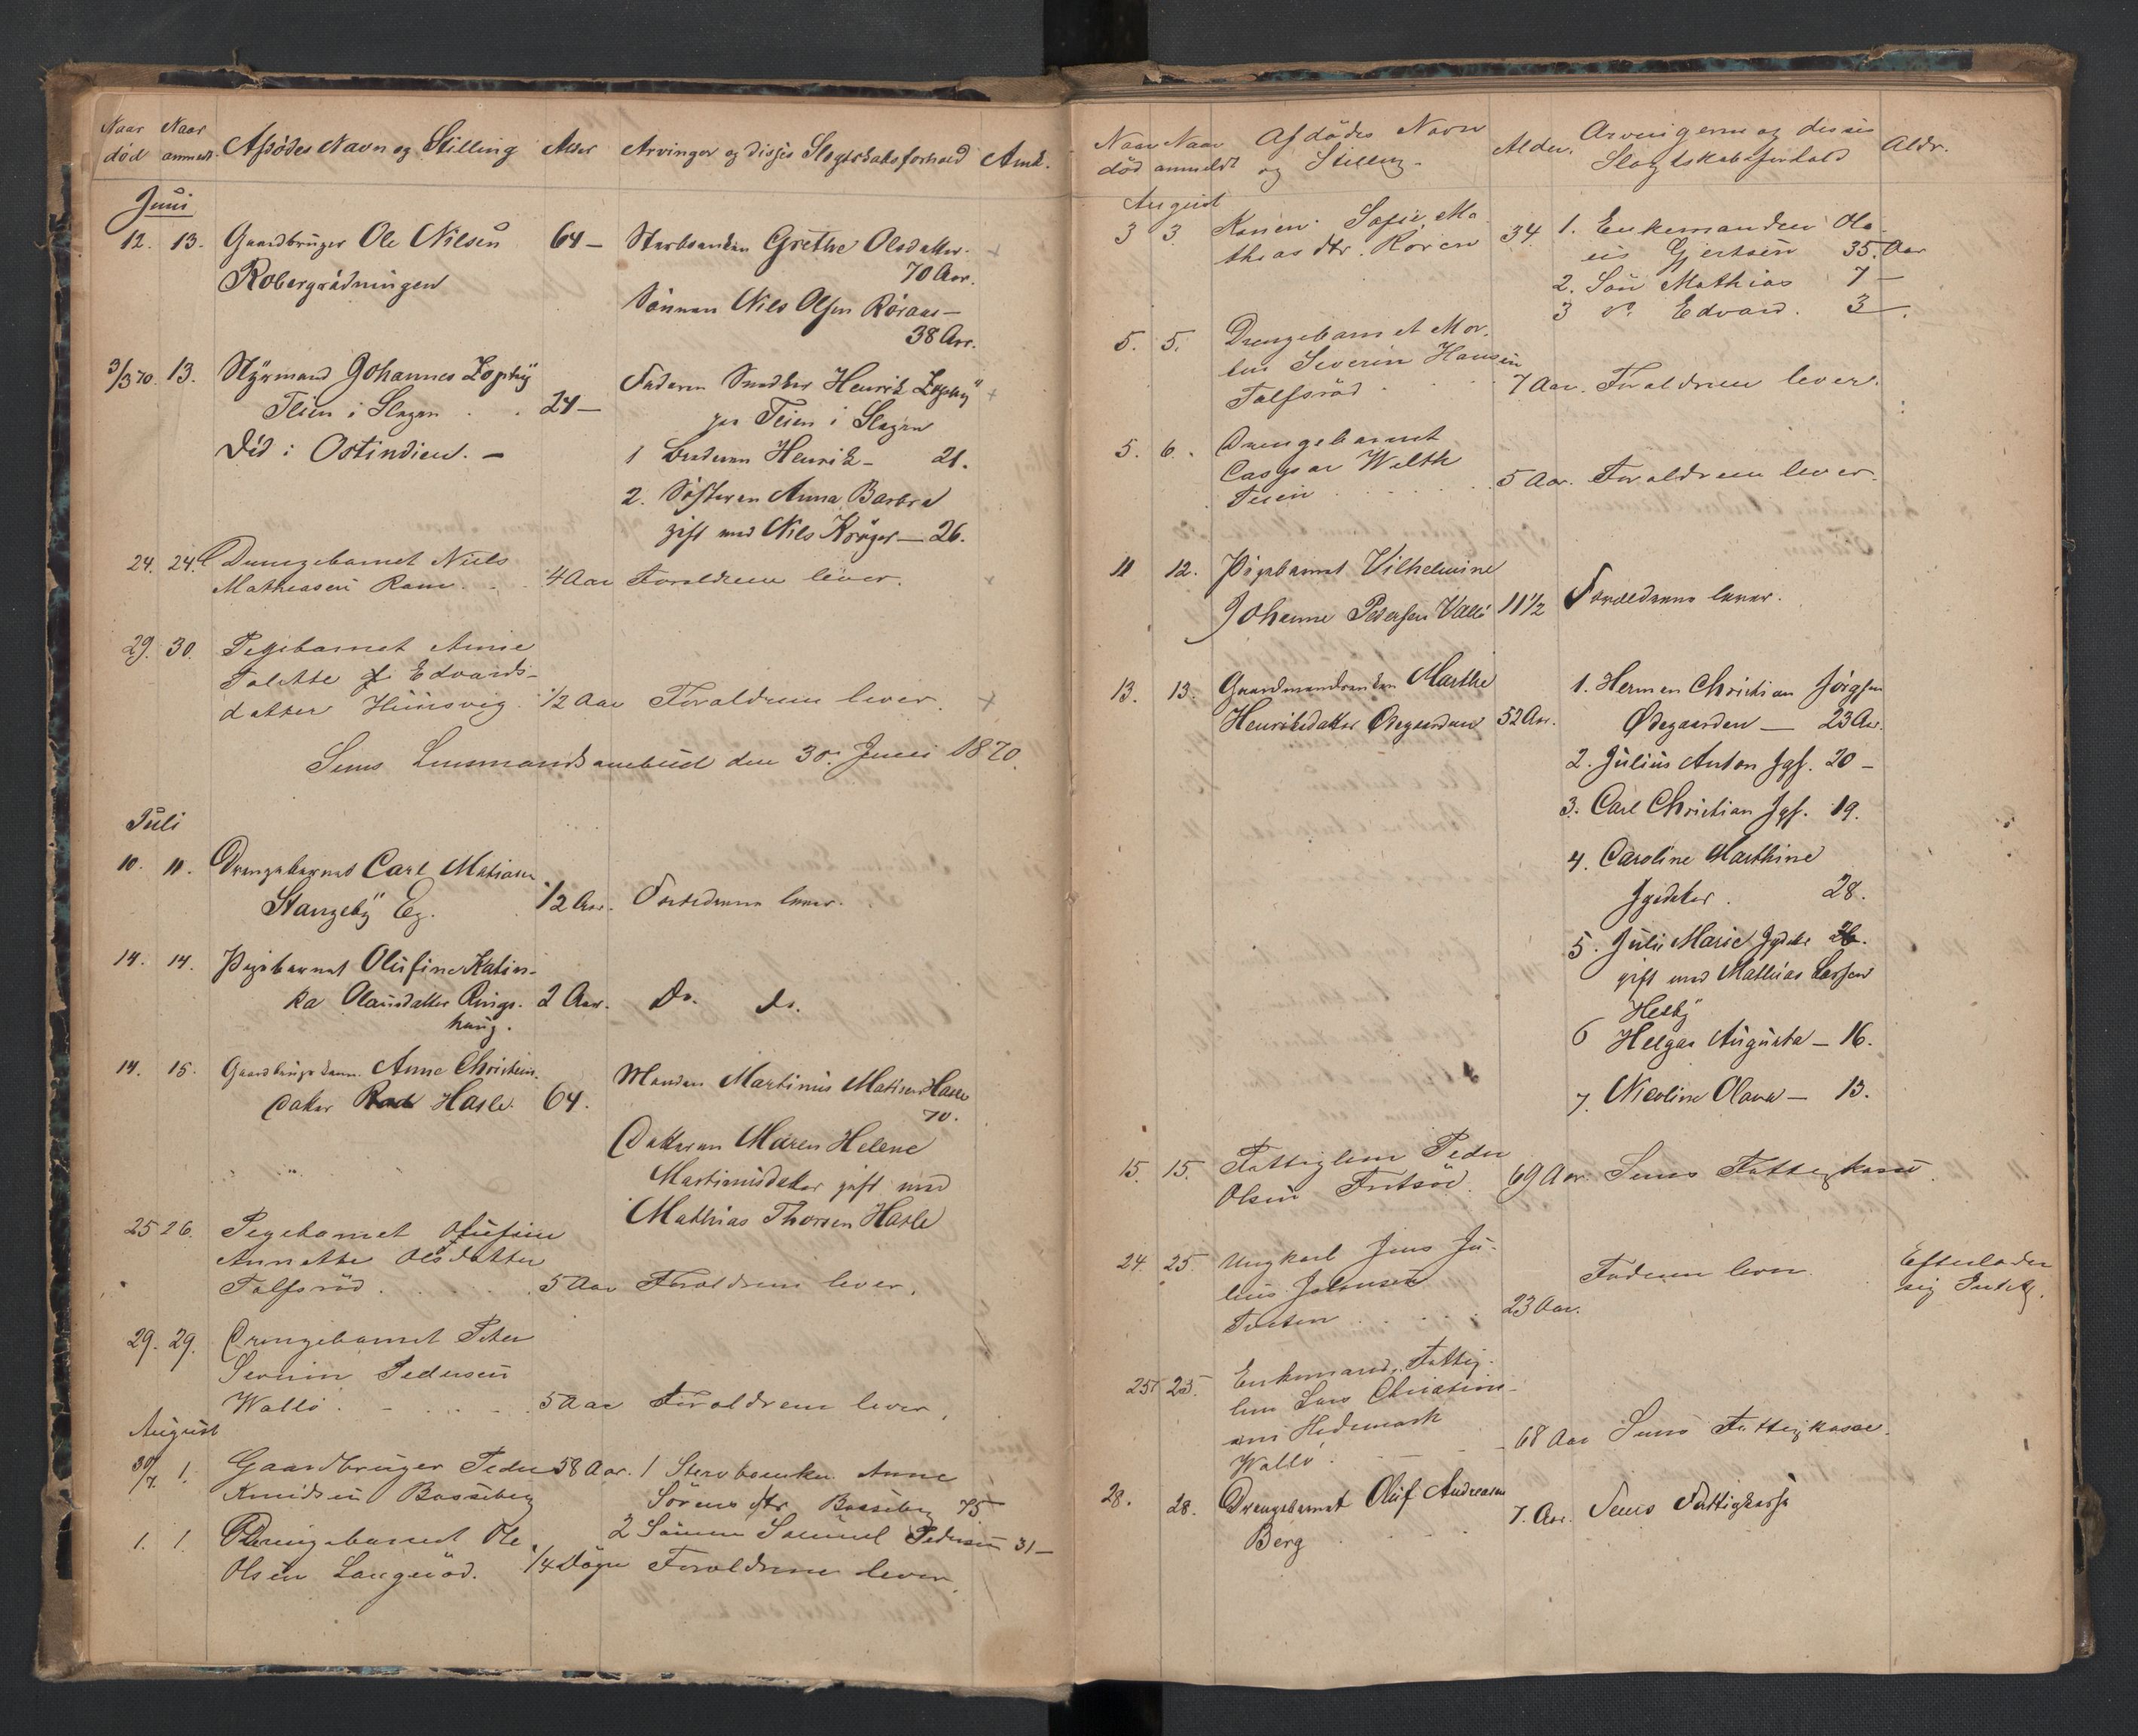 Naar død
Naar anmeldt
Afdødes Navn og Stilling
Alder
Arvinger og disses Slegtskabsforhold
Ank.
Juni
12. 13. Gaardbruger Ole Nilsen 64 — Sterboenken Grethe Olsdatter
Robergrødningen 70 Aar.
Sønnen Nils Olsen Røraas —
38 Aar.
3/3 70. 13. Styrmand Johannes Zophÿ Faderen Henrik Zophÿ
Teien i Slagen . . 24 — Teien i Slagen
Død i Ostindien. — 1 Broderen Henrik — 21.
2. Søsteren Anna Barbra
gift med Nils Krøger — 26.
24. 24. Drengebarnet Niels
Mathiasen Ram . . 4 Aar Foraldrene lever.
29. 30. Pigebarnet Anne
Talette Edvards-
datter Huusvig. 1/2 Aar Foraldrene lever.
Sems Lensmandsombud den 30. Juni 1870.
Juli
10. 11. Drengebarnet Carl Matiasen
Stangebÿ Eg. 1/2 Aar. Foreldrene lever.
14. 14. Pigebarnet Olufine Katin-
ka Olausdatter Rings- 2 Aar. Do. do.
haug.
14. 15. Gaardbrugerkone Anne Christens- Manden Martinius Matisen Hasle
datter Hasle. 64. 70.
Datteren Maren Helene
Martiniusdatter gift med
Mathias Thorsen Hasle
25 26. Pigebarnet Olufine
Annette Olsdatter
Tolfsrød . . . . . 5 Aar Foraldrene lever.
29. 29. Drengebarnet Peter
Severin Pedersen
Wallø . . . . 5 Aar Foraldrene lever.
August
30/7. 1. Gaardbruger Peder 58 Aar. 1 Stervboenken Anne
Knudsen Basseberg Sørensdtr Basseberg 75
2 Sønnen Samuel Pedersen 31 —
1. 1. Drengebarnet Ole
Olsen Langerød. 1/4 Døgn Foraldrene lever.
Naar død
Naar anmeldt
Afdødes Navn og Stilling.
Alder.
Arvingerne og disses Slagtskabsforhold
Aldr.
August
3 3. Konen Sofie Ma- 34. 1. Enkemanden Ola-
thiasdtr. Røren us Gjertsen 35. Aar
2. Søn Mathias 7 —
3 do. Edvard. 3 —.
5. 5. Drengebarnet Mar-
tin Severin Hansen
Tolfsrød . . . 7 Aar. Foraldrene lever.
5. 6. Drengebarnet
Caspar Wilth
Teien . . . . . 5 Aar. Foraldrene lever.
11 12. Pigebarnet Vilhelmine
Johanne Pedersen Vallø 11 1/2 Foraldrene lever.
13. 13. Gaardmandsenken Marthe 1. Herman Christian Jørgsen
Henriksdatter Ødegaarden 52 Aar. Ødegaarden — 23 Aar.
2. Julius Anton Jgs. 20 —
3. Carl Christian Jgs. 19.
4. Caroline Marthine
Jgsdatter. 28.
5. Julie Marie Jgsdatter 26.
gift med Mathias Larsen
Hesbÿ
6 Helga Augusta — 16.
7. Nicoline Olava — 13.
15. 15. Fattiglem Peder
Olsen Fritsøe. 69 Aar. Sems Fattigkasse.
24. 25. Ungkarl Jens Ju-
lius Johnsen Faderen lever. Efterlader
23 Aar. sig Intet.
25 25. Enkemand, Fattig-
lem Lars Christian-
sen Hedemark
Wallø. — 68 Aar Sems Fattigkasse.
28. 28. Drengebarnet Oluf Andreasen
Berg 7. Aar. Sems Fattigkasse